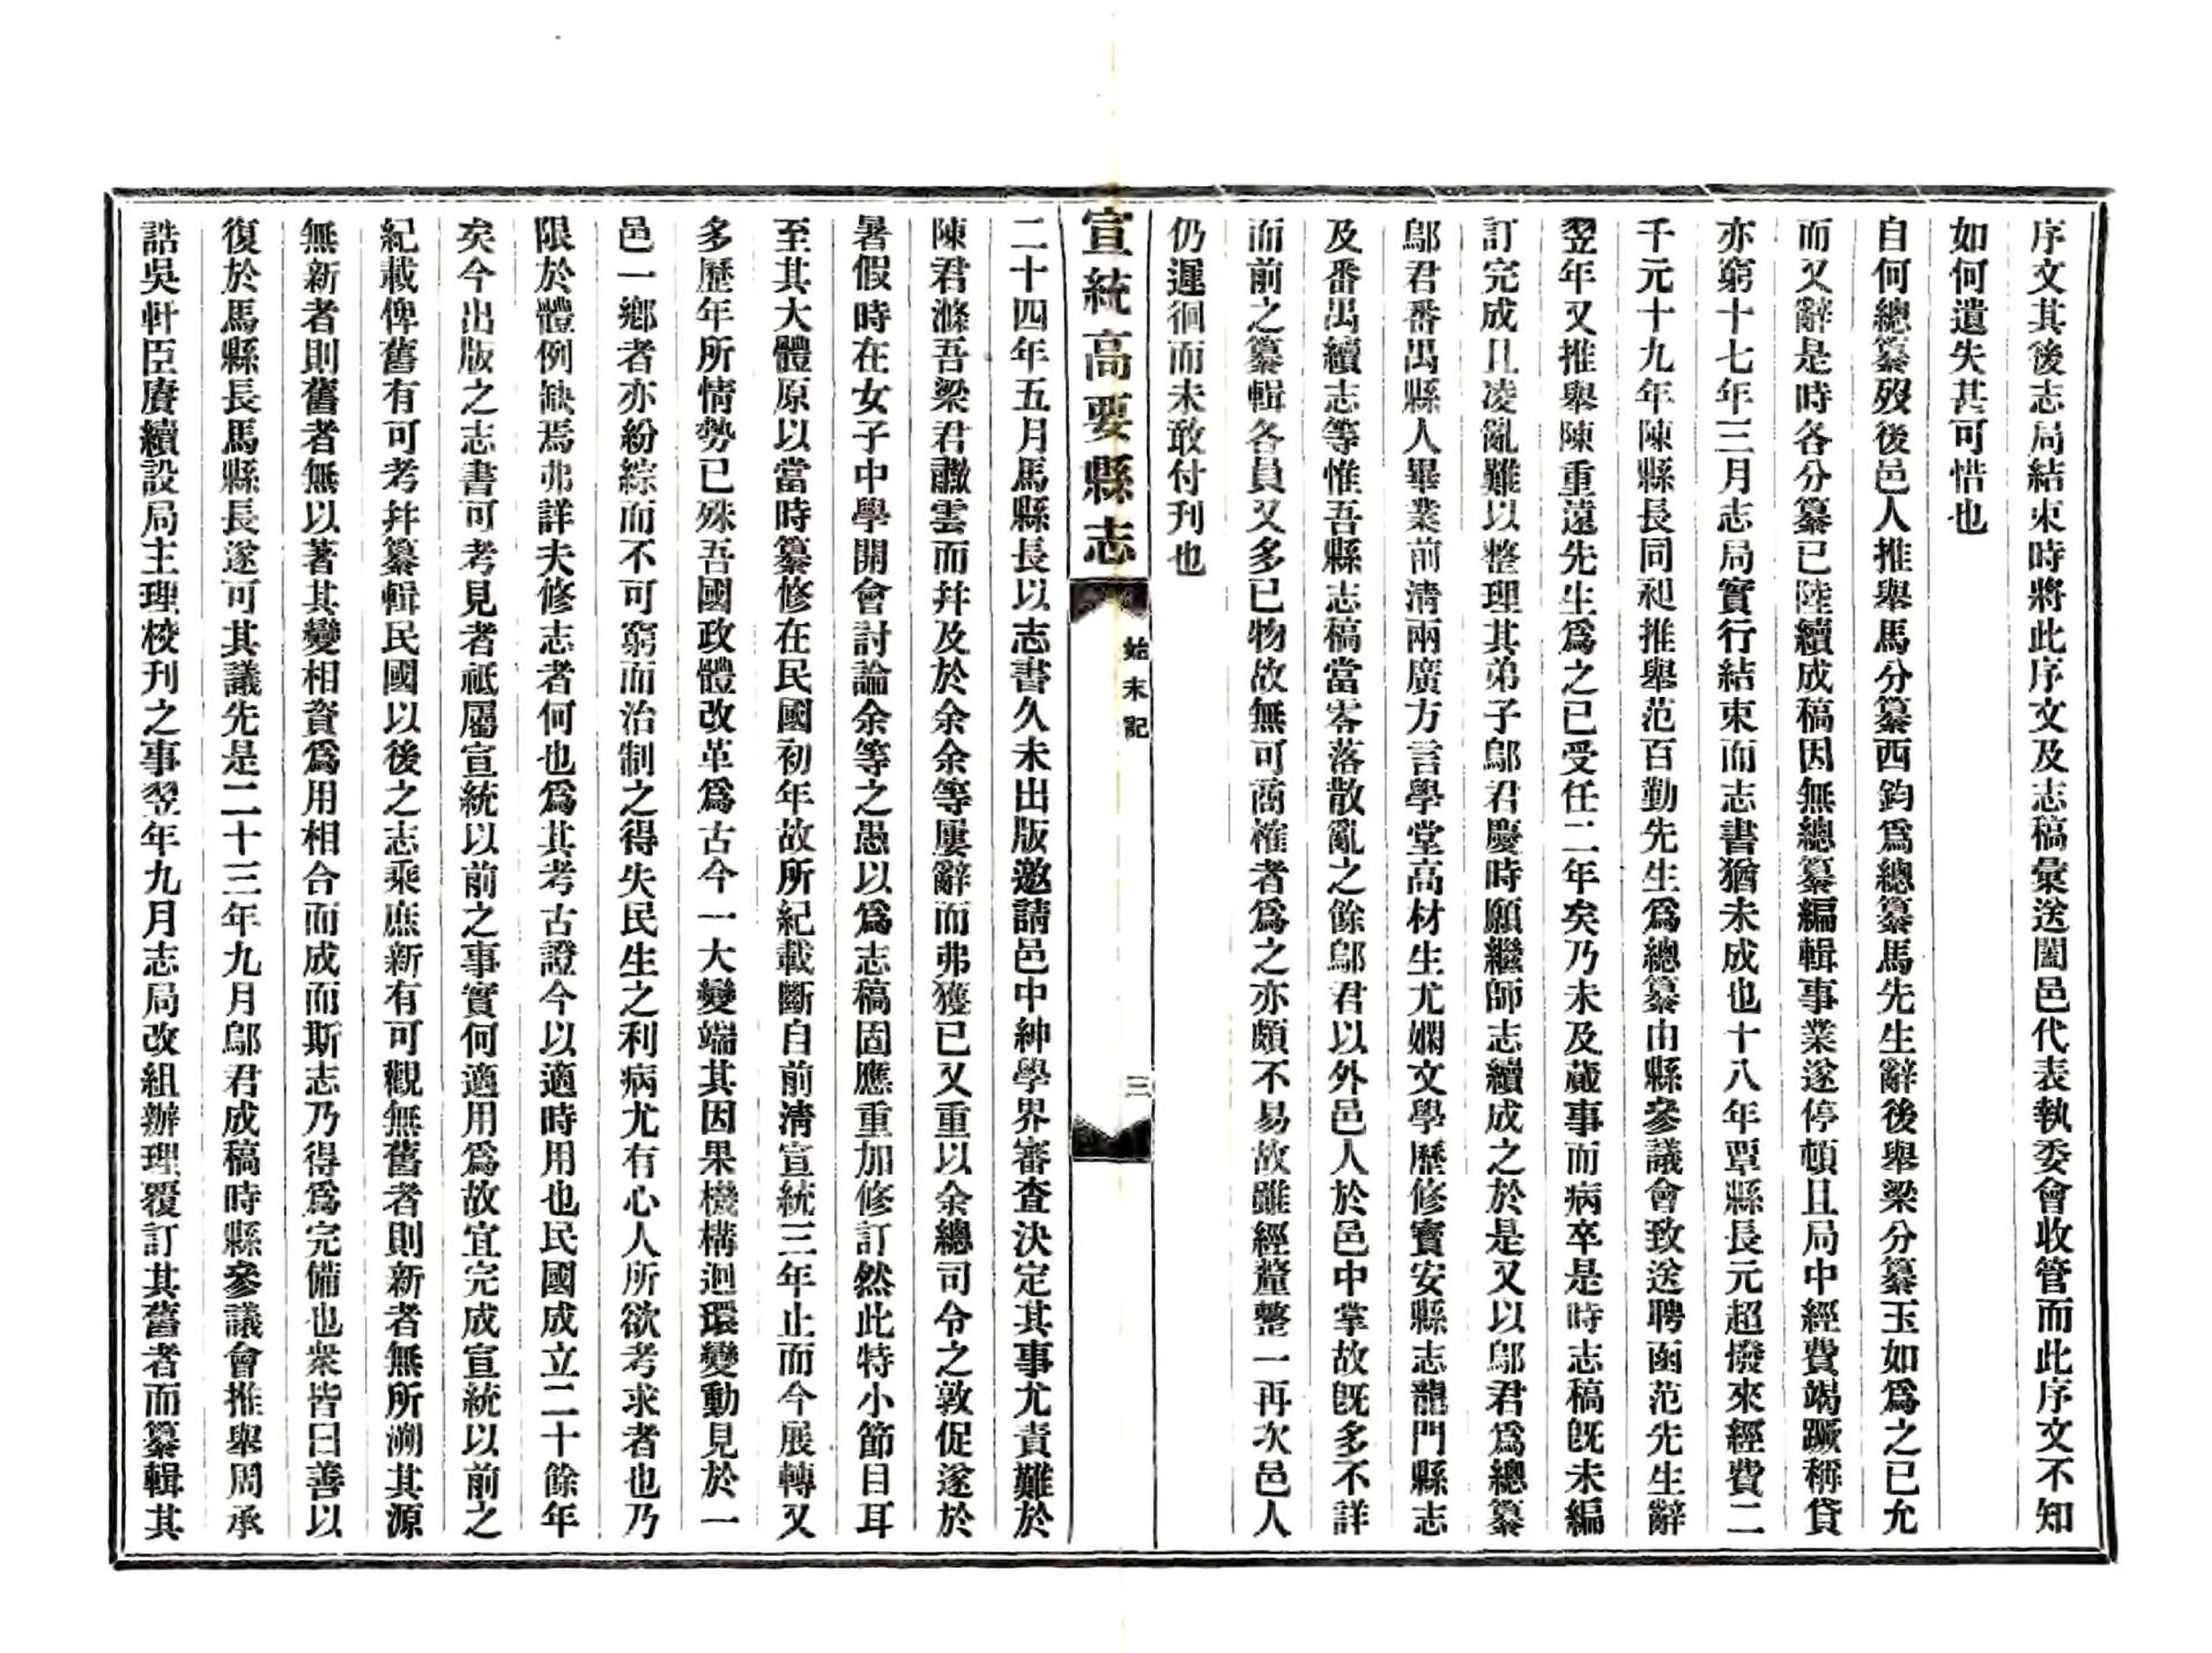 序文其後志局結束時將此序文及志稿彙送闔邑代表執委會收管而此序文不知
如何遺失甚可惜也
自何總纂歿後邑人推舉馬分纂西鈞爲總纂馬先生辭後舉梁分纂玉如爲之已允
而又辭是時各分纂已陸續成稿因無總纂編輯事業遂停頓且局中經費竭蹶稱貸
亦窮十七年三月志局實行結束而志書猶未成也十八年覃縣長元超撥來經費二
千元十九年陳縣長同昶推舉范百勤先生爲總纂由縣參議會致送聘函范先生辭
翌年又推舉陳重遠先生爲之已受任二年矣乃未及蕆事而病卒是時志稿旣未編
訂完成且凌亂難以整理其弟子鄔君慶時願繼師志續成之於是又以鄔君爲總纂
鄔君番禺縣人畢業前淸兩廣方言學堂高材生尤嫻文學歷修寶安縣志龍門縣志
及番禺續志等惟吾縣志稿當零落散亂之餘鄔君以外邑人於邑中掌故旣多不詳
而前之纂輯各員又多已物故無可商榷者爲之亦頗不易故雖經釐整一再次邑人
仍遲徊而未敢付刊也
宣統高要縣志
始末記
三
二十四年五月馬縣長以志書久未出版邀請邑中紳學界審查決定其事尤責難於
陳君滌吾梁君讞雲而幷及於余余等屢辭而弗獲已又重以余總司令之敦促遂於
暑假時在女子中學開會討論余等之愚以爲志稿固應重加修訂然此特小節目耳
至其大體原以當時纂修在民國初年故所紀載斷自前淸宣統三年止而今展轉又
多歷年所情勢已殊吾國政體改革爲古今一大變端其因果機構迴環變動見於一
邑一鄉者亦紛綜而不可窮而治制之得失民生之利病尤有心人所欲考求者也乃
限於體例缺焉弗詳夫修志者何也爲其考古證今以適時用也民國成立二十餘年
矣今出版之志書可考見者祗屬宣統以前之事實何適用爲故宜完成宣統以前之
紀載俾舊有可考幷纂輯民國以後之志乘庶新有可觀無舊者則新者無所溯其源
無新者則舊者無以著其變相資爲用相合而成而斯志乃得爲完備也衆皆曰善以
復於馬縣長馬縣長遂可其議先是二十三年九月鄔君成稿時縣參議會推舉周承
誥吳軒臣賡續設局主理校刊之事翌年九月志局改組辦理覆訂其舊者而纂輯其